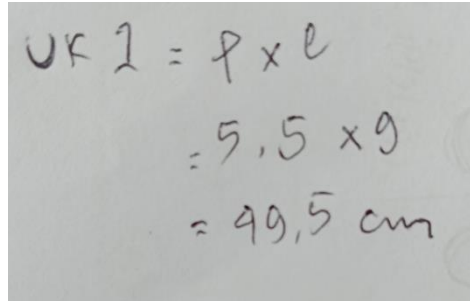 UK 1 = P x l
= 5,5 x 9
= 49,5 cm